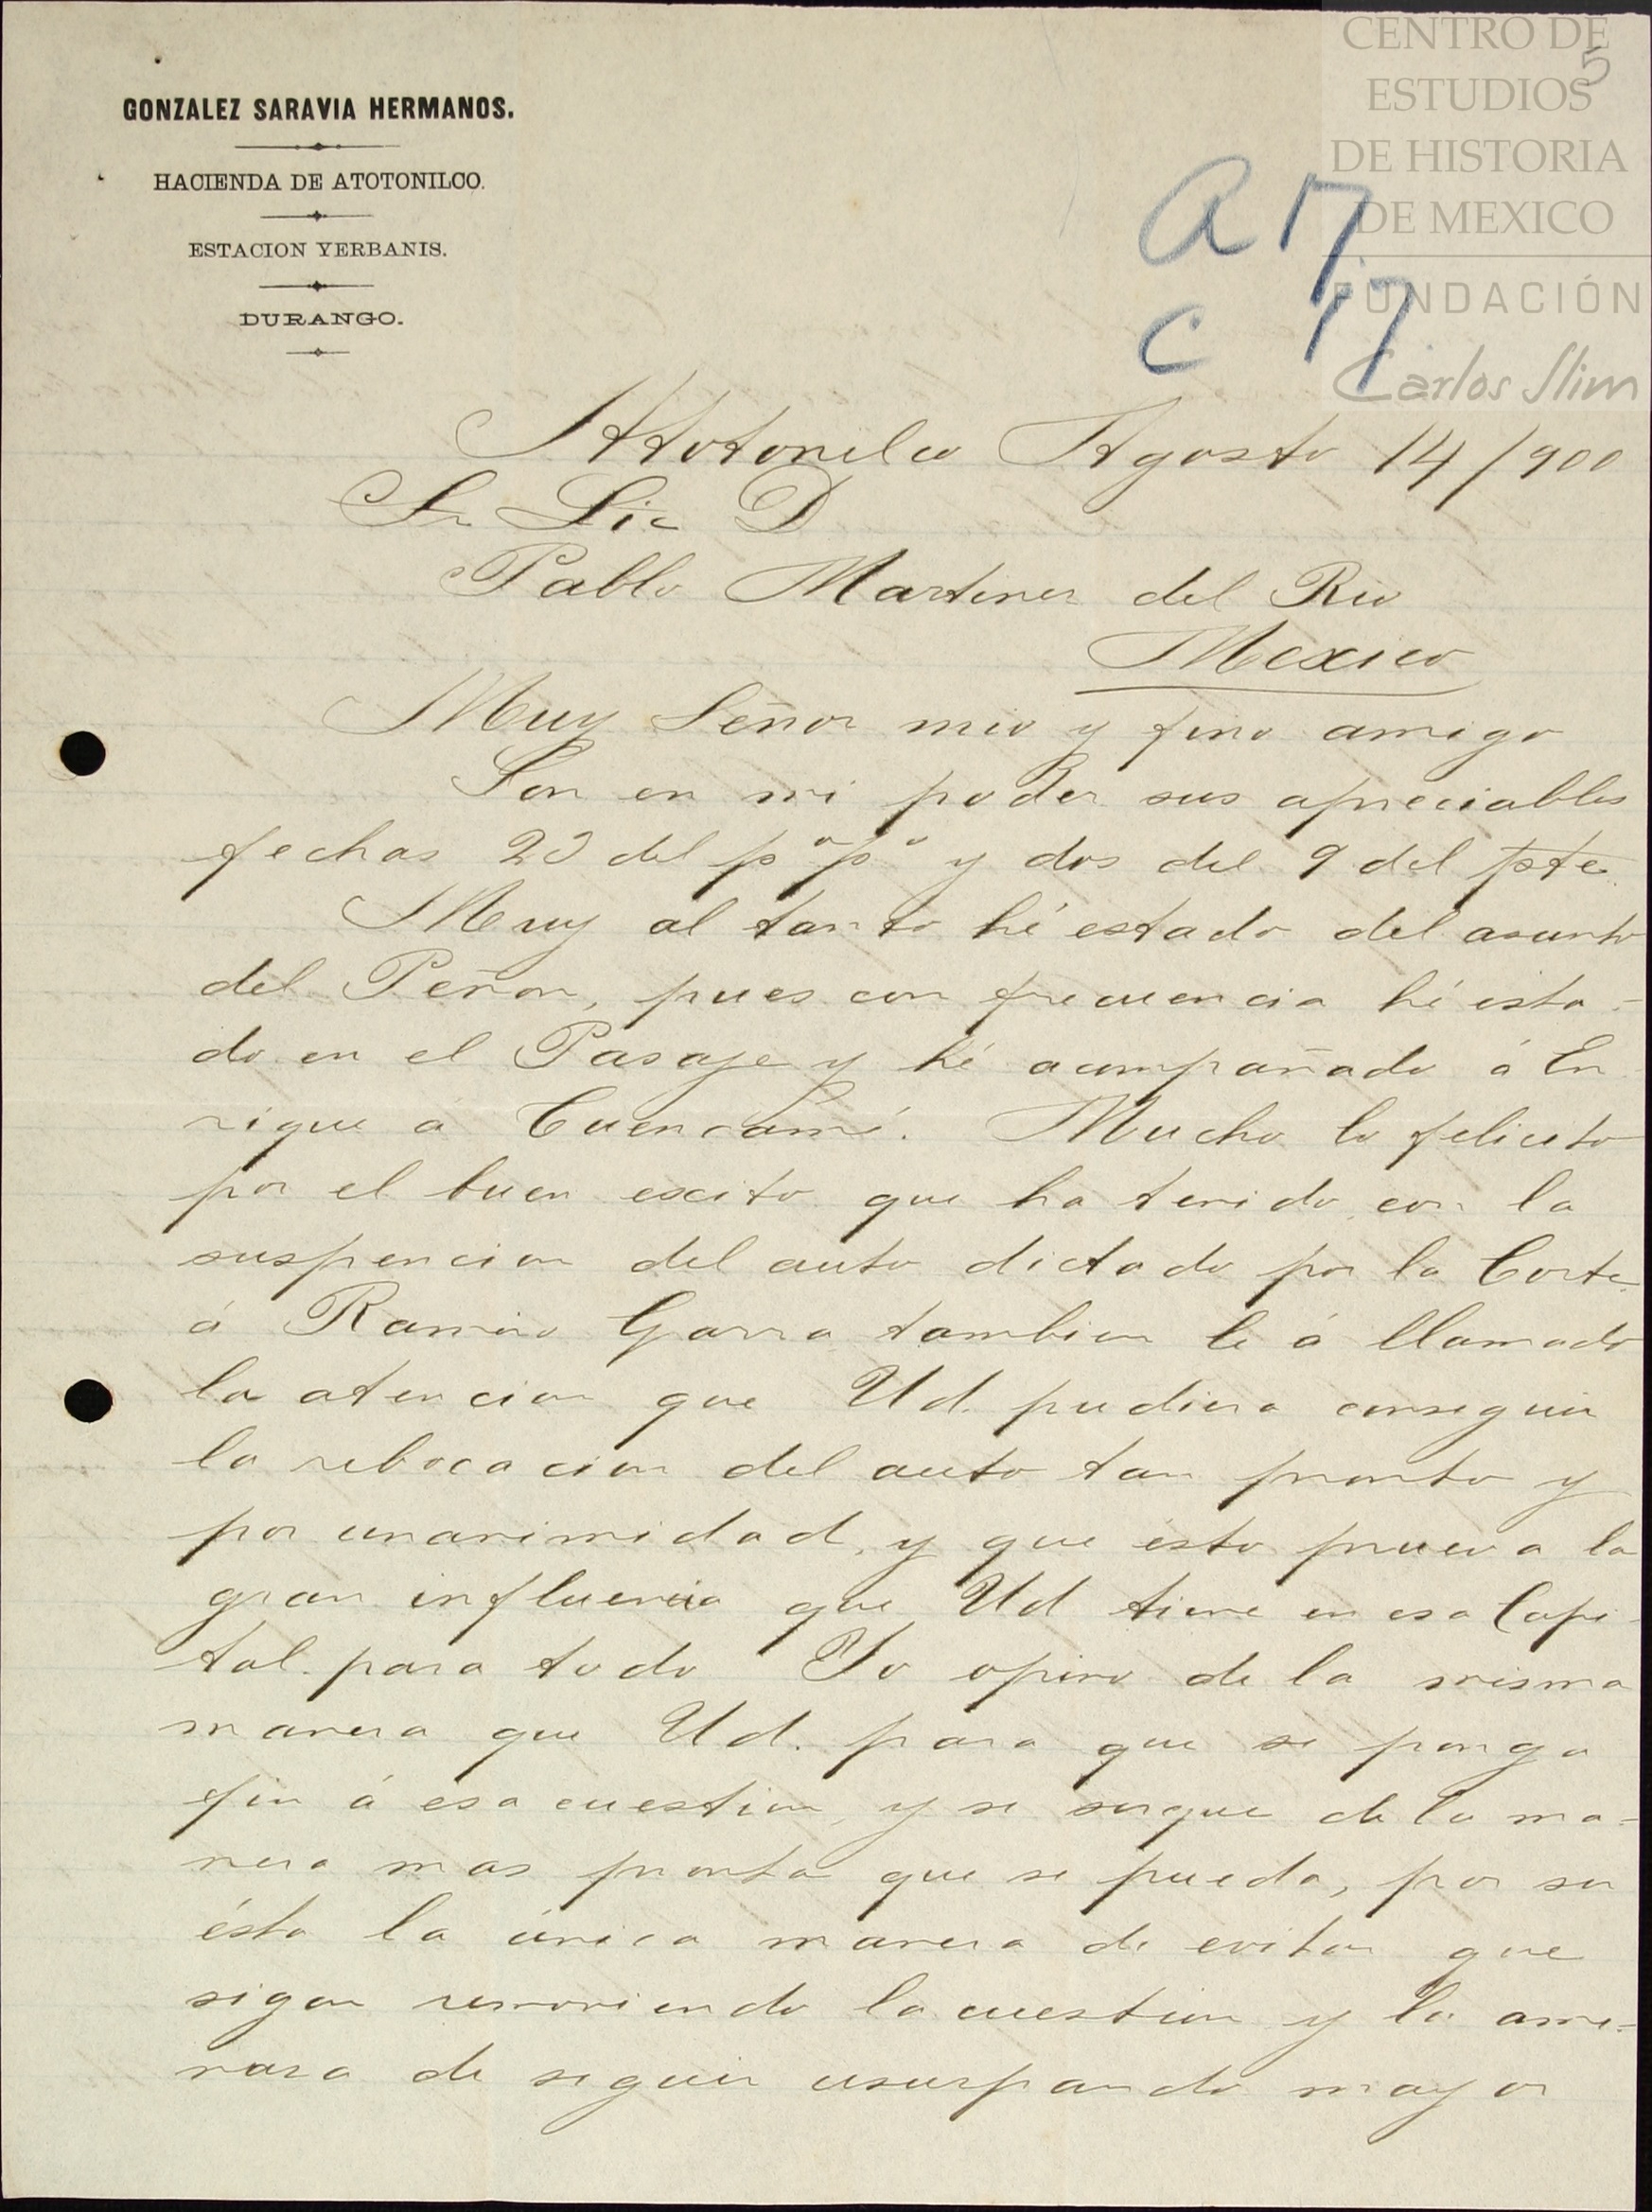 GONZALEZ SARAVIA HERMANOS.
HACIENDA DE ATOTONILCO.
ESTACION YERBANIS.
DURANGO.
CENTRO DE
ESTUDIOS
DE HISTORIA
DE MEXICO
FUNDACIÓN
Carlos Slim
5
a 17
c 17
Atotonilco Agosto 14/900
Sr Lic D
Pablo Martinez del Rio
Mexico
Muy Señor mio y fino amigo
Son en mi poder sus apreciables
fechas 23 del pº pº y dos del 9 del pte
Muy al tanto hé estado del asunto
del Peñon, pues con frecuencia hé esta-
do en el Pasaje y hé acompañado á En
rique á Cuencamé. Mucho lo felicito
por el buen excito que ha tenido con la
suspencion del auto dictado por la Corte.
á Ramiro Garza tambien le á llamado
la atencion que Ud. pudiera conseguir
la rebocacion del auto tan pronto y
por unanimidad, y que esto prueva la
gran influencia que Ud tiene en esa Capi-
tal para todo Yo opino de la misma
manera que Ud. para que se ponga
fin á esa cuestion, y se saque de la ma-
nera mas pronta que se pueda, por ser
ésta la única manera de evitar que
sigan removiendo la cuestion y la ame-
naza de seguir usurpando mayor